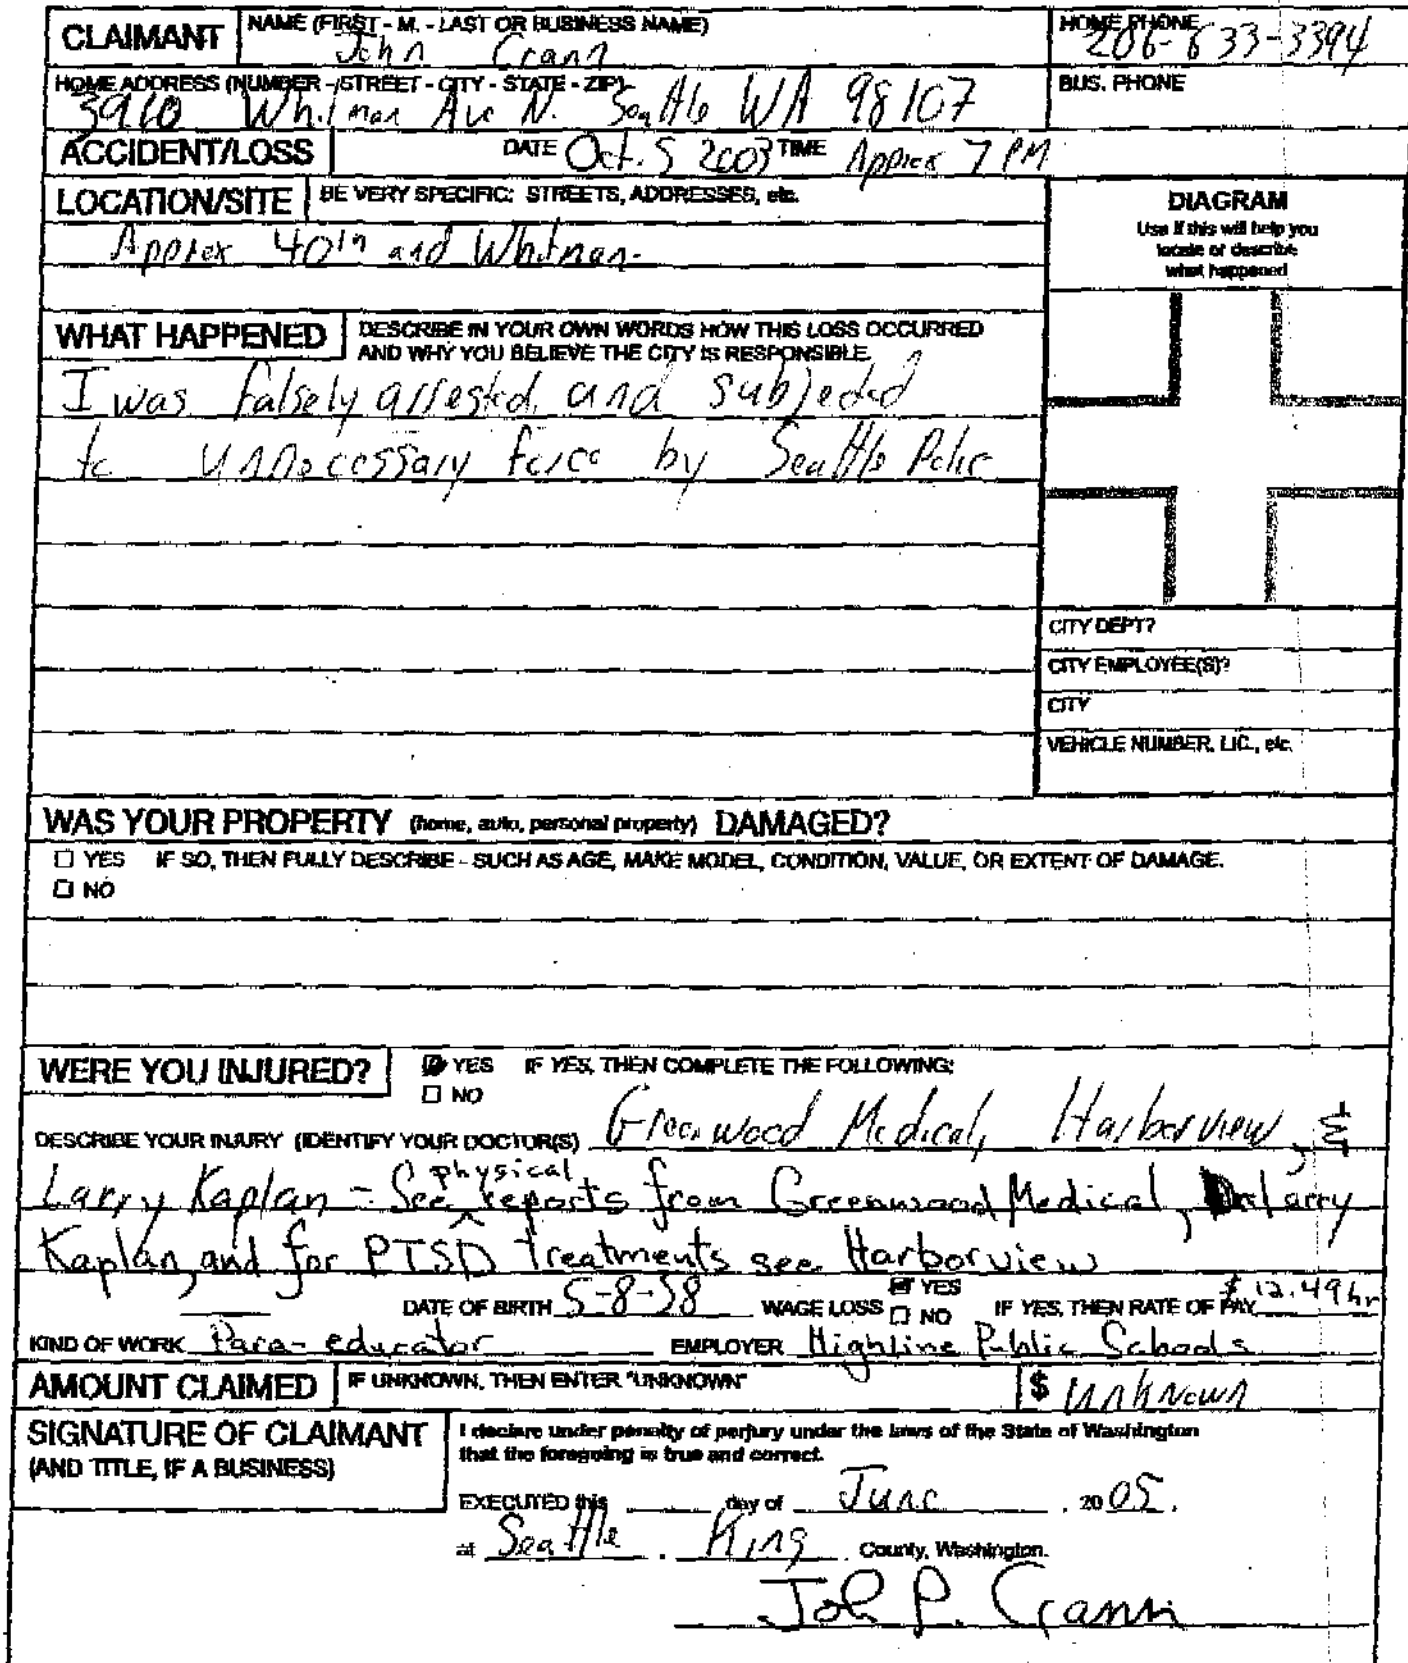 CLAIMANT NAME (FIRST - M. - LAST OR BUSINESS NAME) HOME PHONE
John Crann 206-633-3394
HOME ADDRESS (NUMBER - STREET - CITY - STATE - ZIP) BUS. PHONE
3910 Whitman Ave N. Seattle WA 98107
ACCIDENT/LOSS DATE Oct. 5 2003 TIME Approx 7 PM
LOCATION/SITE BE VERY SPECIFIC: STREETS, ADDRESSES, etc.
Approx 40th and Whitman.
DIAGRAM
Use if this will help you
locate or describe
what happened
WHAT HAPPENED DESCRIBE IN YOUR OWN WORDS HOW THIS LOSS OCCURRED
AND WHY YOU BELIEVE THE CITY IS RESPONSIBLE.
I was falsely arrested and subjected
to unnecessary force by Seattle Police
CITY DEPT?
CITY EMPLOYEE(S)?
CITY
VEHICLE NUMBER, LIC., etc.
WAS YOUR PROPERTY (home, auto, personal property) DAMAGED?
☐ YES IF SO, THEN FULLY DESCRIBE - SUCH AS AGE, MAKE MODEL, CONDITION, VALUE, OR EXTENT OF DAMAGE.
☐ NO
WERE YOU INJURED? ☑ YES IF YES, THEN COMPLETE THE FOLLOWING:
☐ NO
DESCRIBE YOUR INJURY (IDENTIFY YOUR DOCTOR(S) Greenwood Medical, Harborview, &
Larry Kaplan - See physical reports from Greenwood Medical, Larry
Kaplan, and for PTSD treatments see Harborview
DATE OF BIRTH 5-8-58 WAGE LOSS ☑ YES ☐ NO IF YES, THEN RATE OF PAY $12.49 hr
KIND OF WORK Para-educator EMPLOYER Highline Public Schools
AMOUNT CLAIMED IF UNKNOWN, THEN ENTER "UNKNOWN" $ unknown
SIGNATURE OF CLAIMANT
(AND TITLE, IF A BUSINESS)
I declare under penalty of perjury under the laws of the State of Washington
that the foregoing is true and correct.
EXECUTED this day of June, 2005.
at Seattle, King County, Washington.
John P. Crann